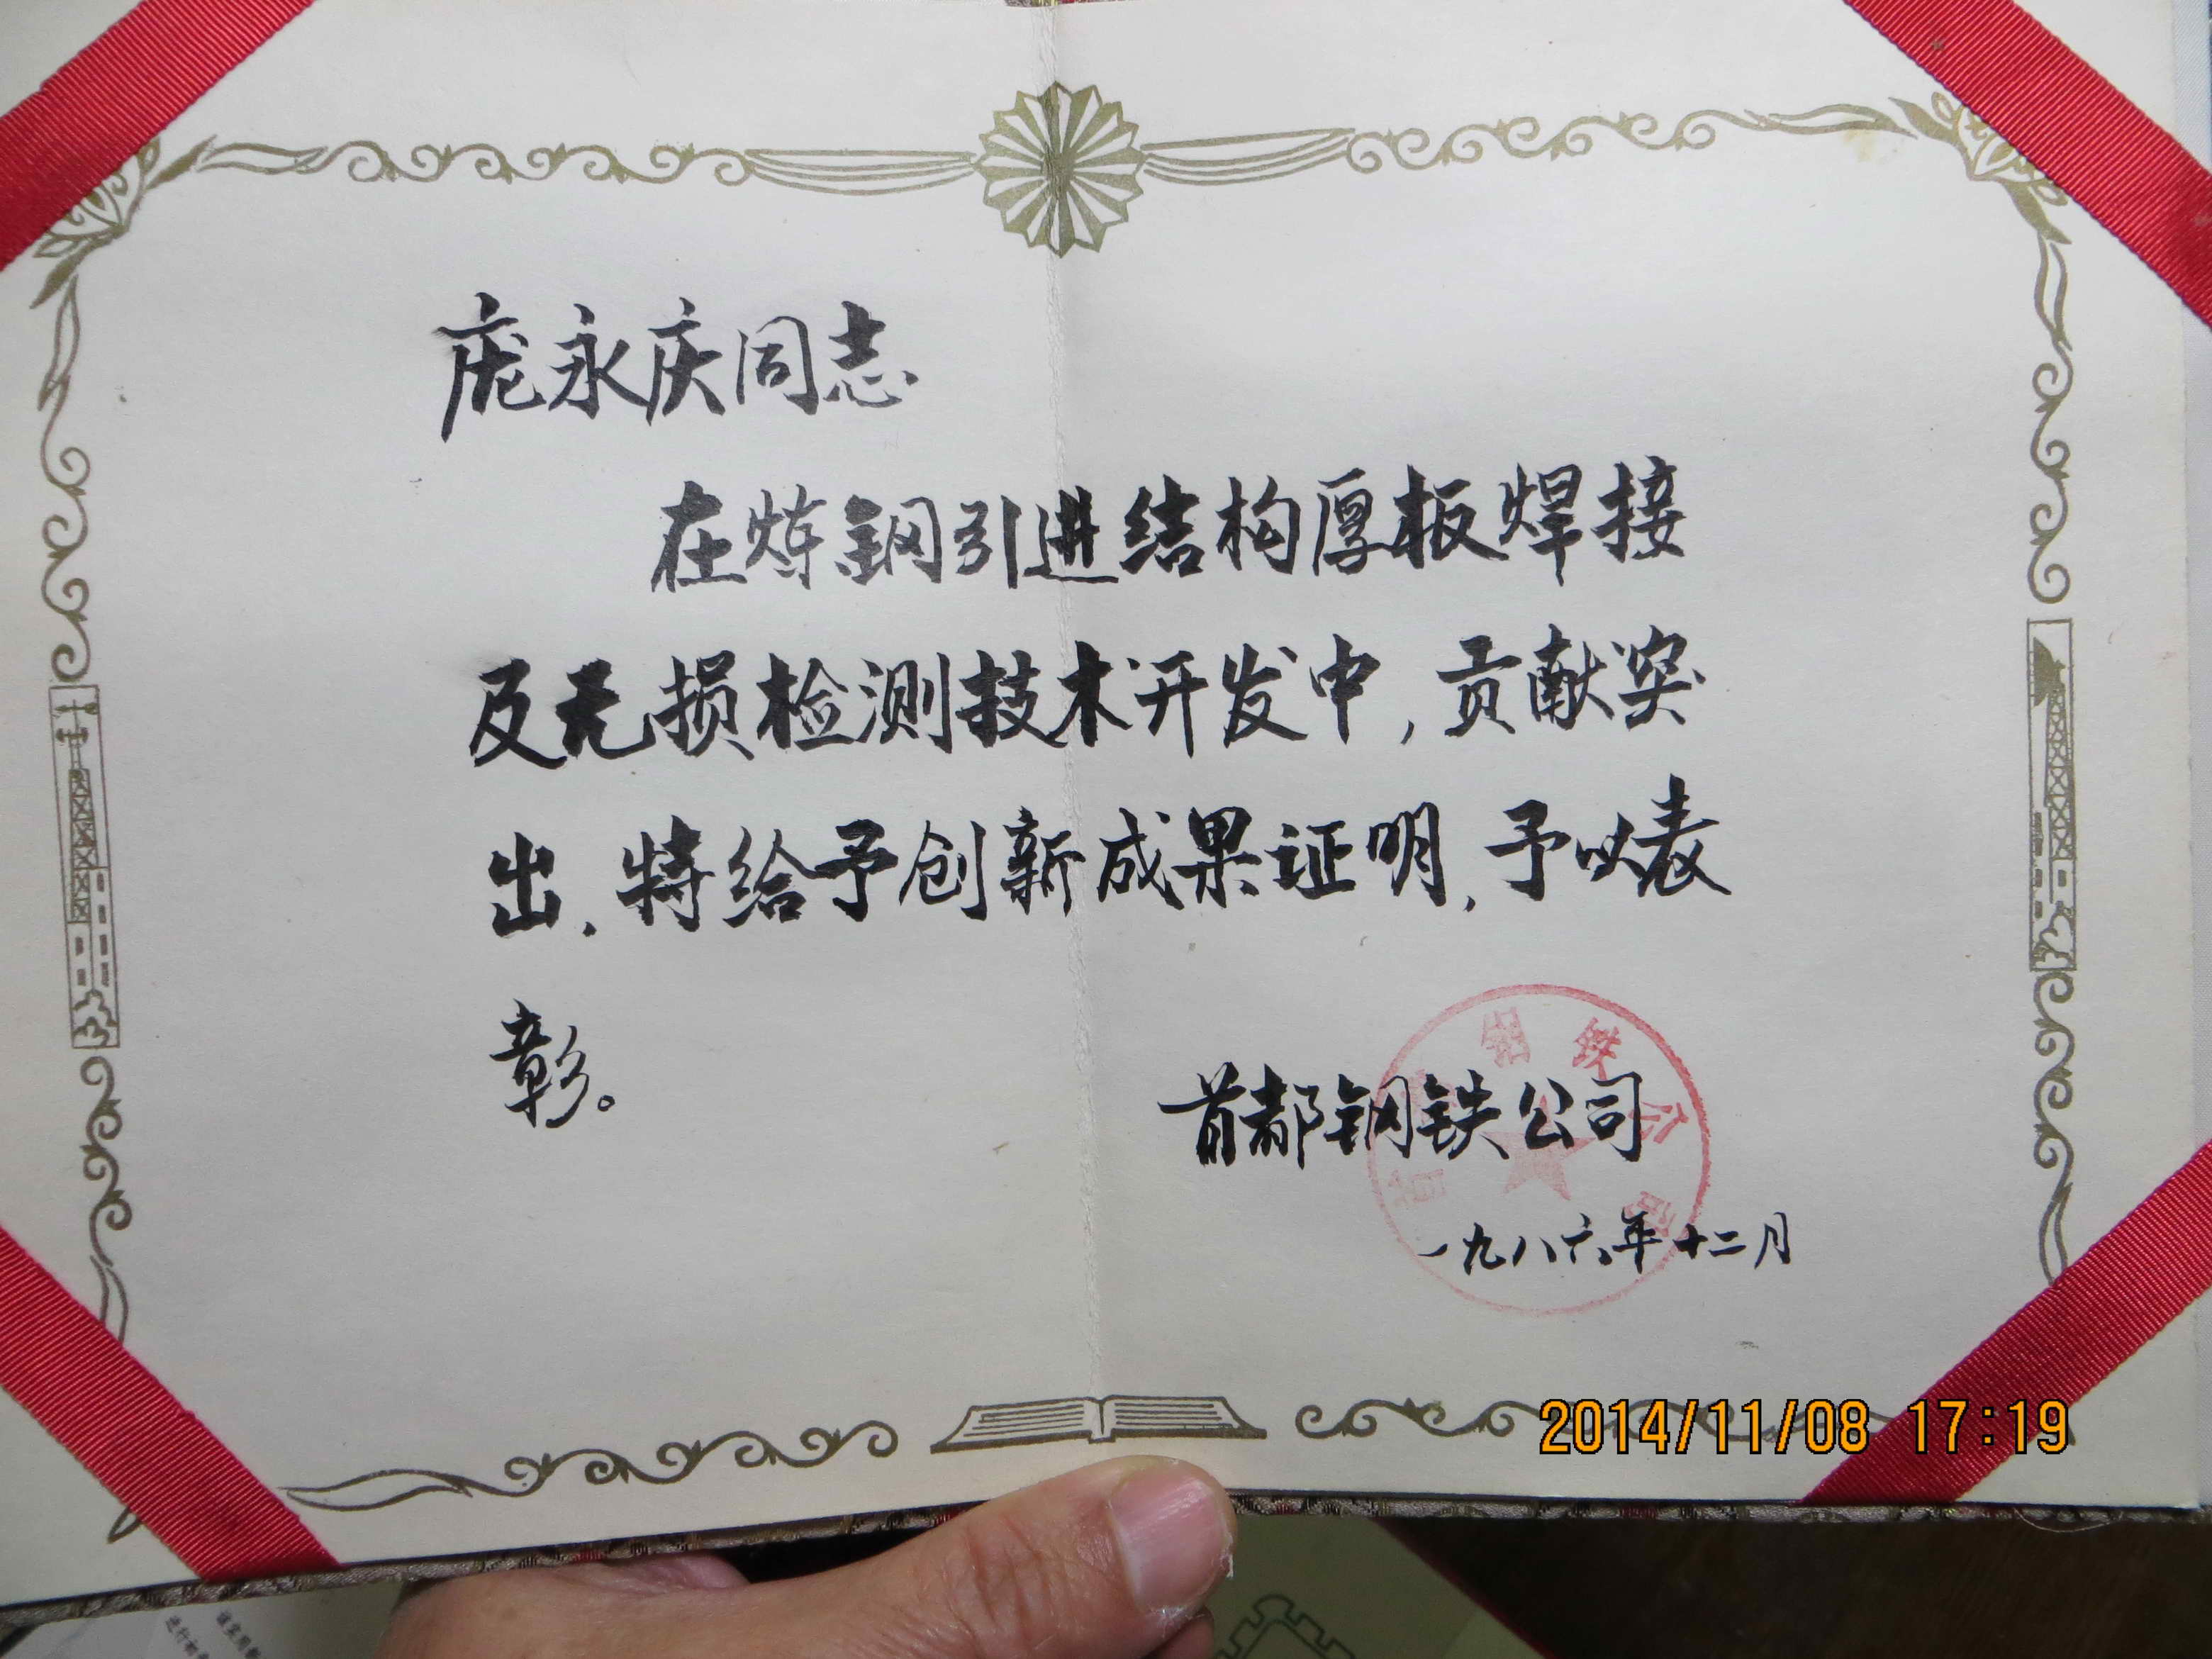 庞永庆同志
在炼钢引进结构厚板焊接
及无损检测技术开发中,贡献突
出,特给予创新成果证明,予以表
彰。
首都钢铁公司
首都钢铁公司
一九八六年十二月
2014/11/08 17:19